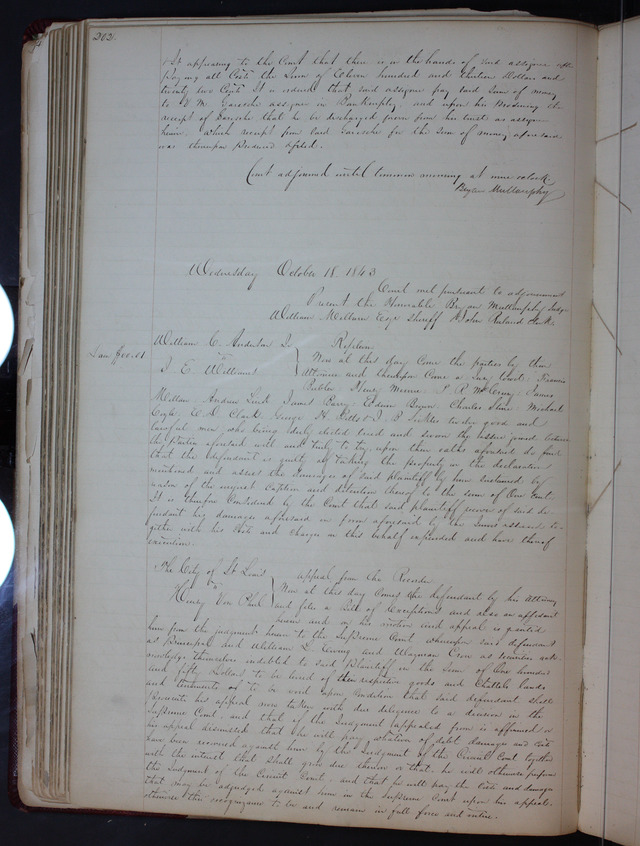 202
It appearing to the Court that there is in the hands of said assignee after
paying all Costs the Sum of Eleven hundred and thirteen Dollars and
twenty two Cents It is ordered that said assignee pay said Sum of money
to P. M. Garesche assignee in Bankruptcy and upon his Producing the
receipt of Garesche that he be discharged from his trust as assignee
herein. Which receipt from said Garesche for the Sum of money aforesaid
was thereupon Produced & filed.
Court adjourned until tomorrow morning at nine oclock.
Bryan Mullanphy
Wednesday October 18. 1843
Court met pursuant to adjournment
Present the Honorable Bryan Mullanphy Judge
William Milburn Esqr Sheriff & John Ruland Clerk.
William C. Anderson Jr Replevin
vs Now at this day Come the parties by their
J. E. Williams attornies and thereupon Came a Jury towit; Francis
Henry P. R. McCreary James
Andrew Link James Barry Edwin Bryan Charles Michael
E. D. Clark George H. & J. B. Sickles twelve good and
lawful men who being duly elected tried and sworn the issue joined between
the parties aforesaid well and truly to try, upon their oaths aforesaid do find
that the defendant is guilty of taking the property in the declaration
mentioned and assess the damages of said plaintiff by him sustained by
reason of the unjust Caption and detention thereof to the sum of One Cent.
It is therefore Considered by the Court that said plaintiff recover of said de-
fendant his damages aforesaid in form aforesaid by the Jurors assessed to-
gether with his Costs and charges in this behalf expended and have thereof
execution.
The City of St Louis appeal from the Recorder
vs Now at this day Comes the defendant by his Attorney
Henry Von Phul and files a Bill of Exceptions and also an affidavit
herein and on his motion and appeal is granted
him from the judgment herein to the Supreme Court, whereupon said defendant
as Principal and William L. Ewing and Wayman Crow as securities ack-
nowledge themselves indebted to said Plaintiff in the Sum of One hundred
and fifty Dollars to be levied of their respective goods and Chattels lands
and tenements or to be void upon Condition that said defendant shall
Prosecute his appeal now taken with due diligence to a decision in the
Supreme Court, and that if the Judgment appealed from is affirmed or
his appeal dismissed that he will pay whatever of debt damages and Costs
have been recovered against him by the Judgment of the Circuit Court together
with the interest that shall grow due thereon or that he will otherwise perform
the Judgment of the Circuit Court, and that he will pay the Costs and damages
that may be adjudged against him in the Supreme Court upon his appeal.
otherwise this recognizance to be and remain in full force and virtue.